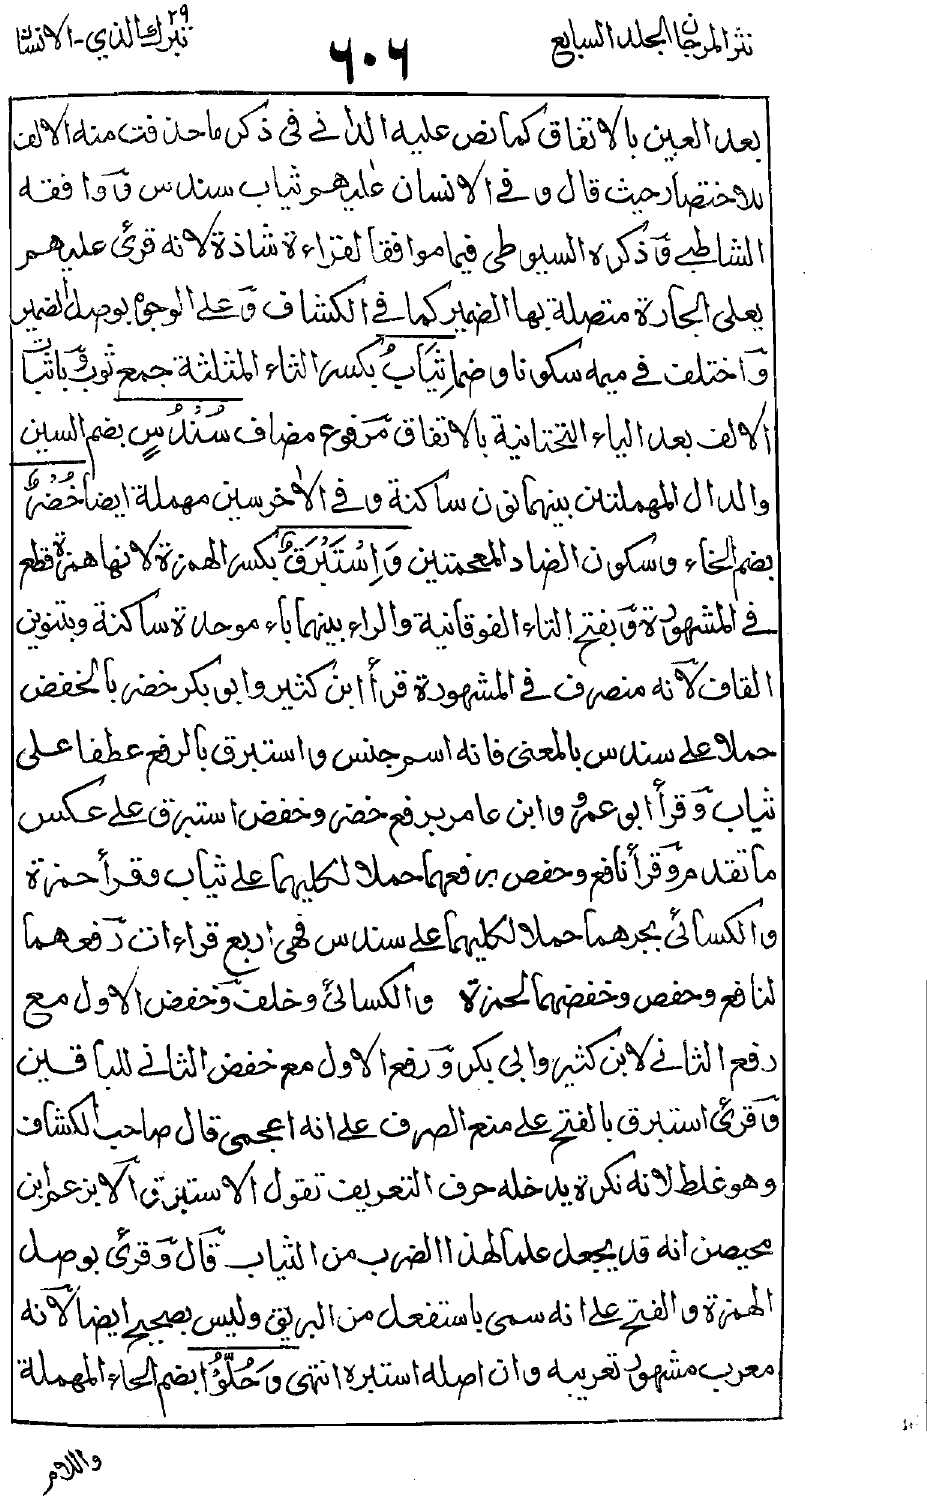 نثر المرجان المجلد السابع
٦٠٦
تبٰرك الذي ٢٩ - الانسان
بعد العين بالاتفاق كما نص عليه الدانے فی ذكر ما حذفت منه الالف
للاختصار حيث قال و فے الانسان عٰليهم ثياب سندس وَ وافقه
الشاطبے وَ ذكره السيوطی فيما موافقا لقراءة شاذة لانه قرئ عليهم
بعلی الجارة متصلة بها الضمير كما فے الكشاف وَ علے الوجوه بوصل الضمير
وَ اختلف فے ميمه سكونا و ضما ثِيَابُ بكسر الثاء المثلثة جمع ثوب وَ باثبات
الالف بعد الياء التحتانية بالاتفاق مَرفوع مضاف سُنْدُسٍ بضم السين
والدال المهملتين بينهما نون ساكنة و فے الاٰخر سين مهملة ايضا خُضْرٌ
بضم الخاء و سكون الضاد المعجمتين وَاِسْتَبْرَقٌ بكسر الهمزة لانها همزة قطع
فے المشهورة وَ بفتح التاء الفوقانية والراء بينهما باء موحدة ساكنة و بتنوين
القاف لاَنه منصرف فے المشهورة قرأ ابن كثير وابو بكر خضر بالخفض
حملا علے سندس بالمعنی فانه اسم جنس و استبرق بالرفع عطفا علی
ثياب وَ قرأ ابو عمرو و ابن عامر برفع خضر و خفض استبرق علے عكس
ما تقدم وَ قرأ نافع و حفص برفعهما حملا لكليهما علے ثياب و قرأ حمزة
والكسائی بجرهما حملا لكليهما علے سندس فهی اربع قراءات رَفعهما
لنافع و حفص و خفضهما لحمزة والكسائی و خلف وَ خفض الاول مع
رفع الثانے لابن كثير و ابی بكر وَ رفع الاول مع خفض الثانے للباقين
وَ قرئ استبرق بالفتح علے منع الصرف علے انه اعجمی قال صاحب الكشاف
و هو غلط لانه نكرة يدخله حرف التعريف تقول الاستبرق اَلا يزعم ابن
محيصن انه قد يجعل علما لهذا الضرب من الثياب قَال وَ قرئ بوصل
الهمزة و الفتح علے انه سمی باستفعل من البريق و ليس بصحيح ايضا لاَنه
معرب مشهور تعريبه و ان اصله استبره انتهی وَحُلُّوْٓا بضم الحاء المهملة
واللام